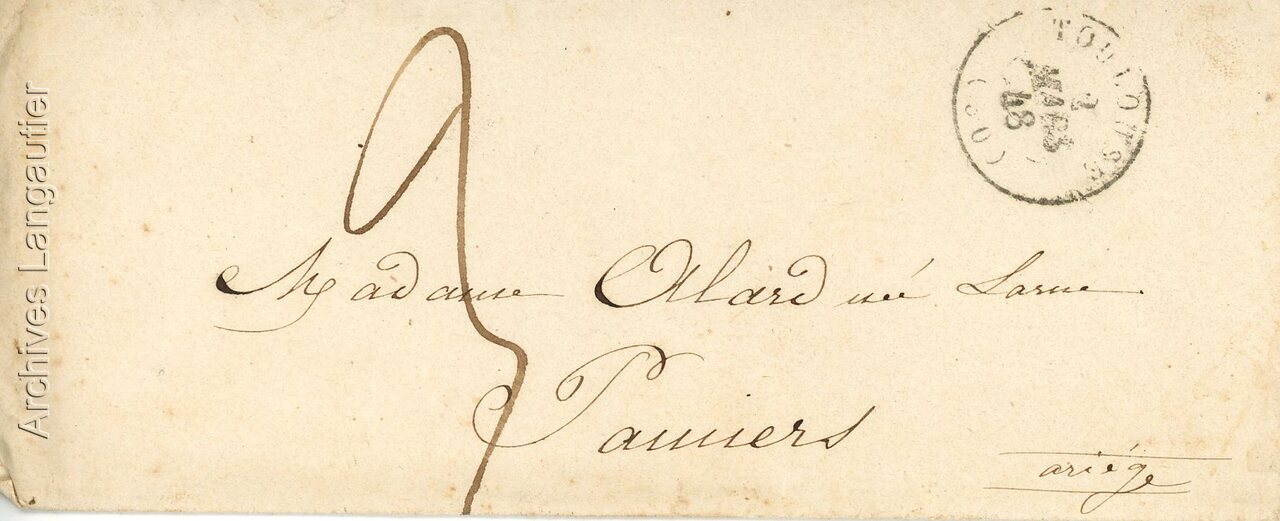 Archives Langautier
TOULOUSE
2
MARS
48
(30)
Madame Alard née Larue
Pamiers
ariége